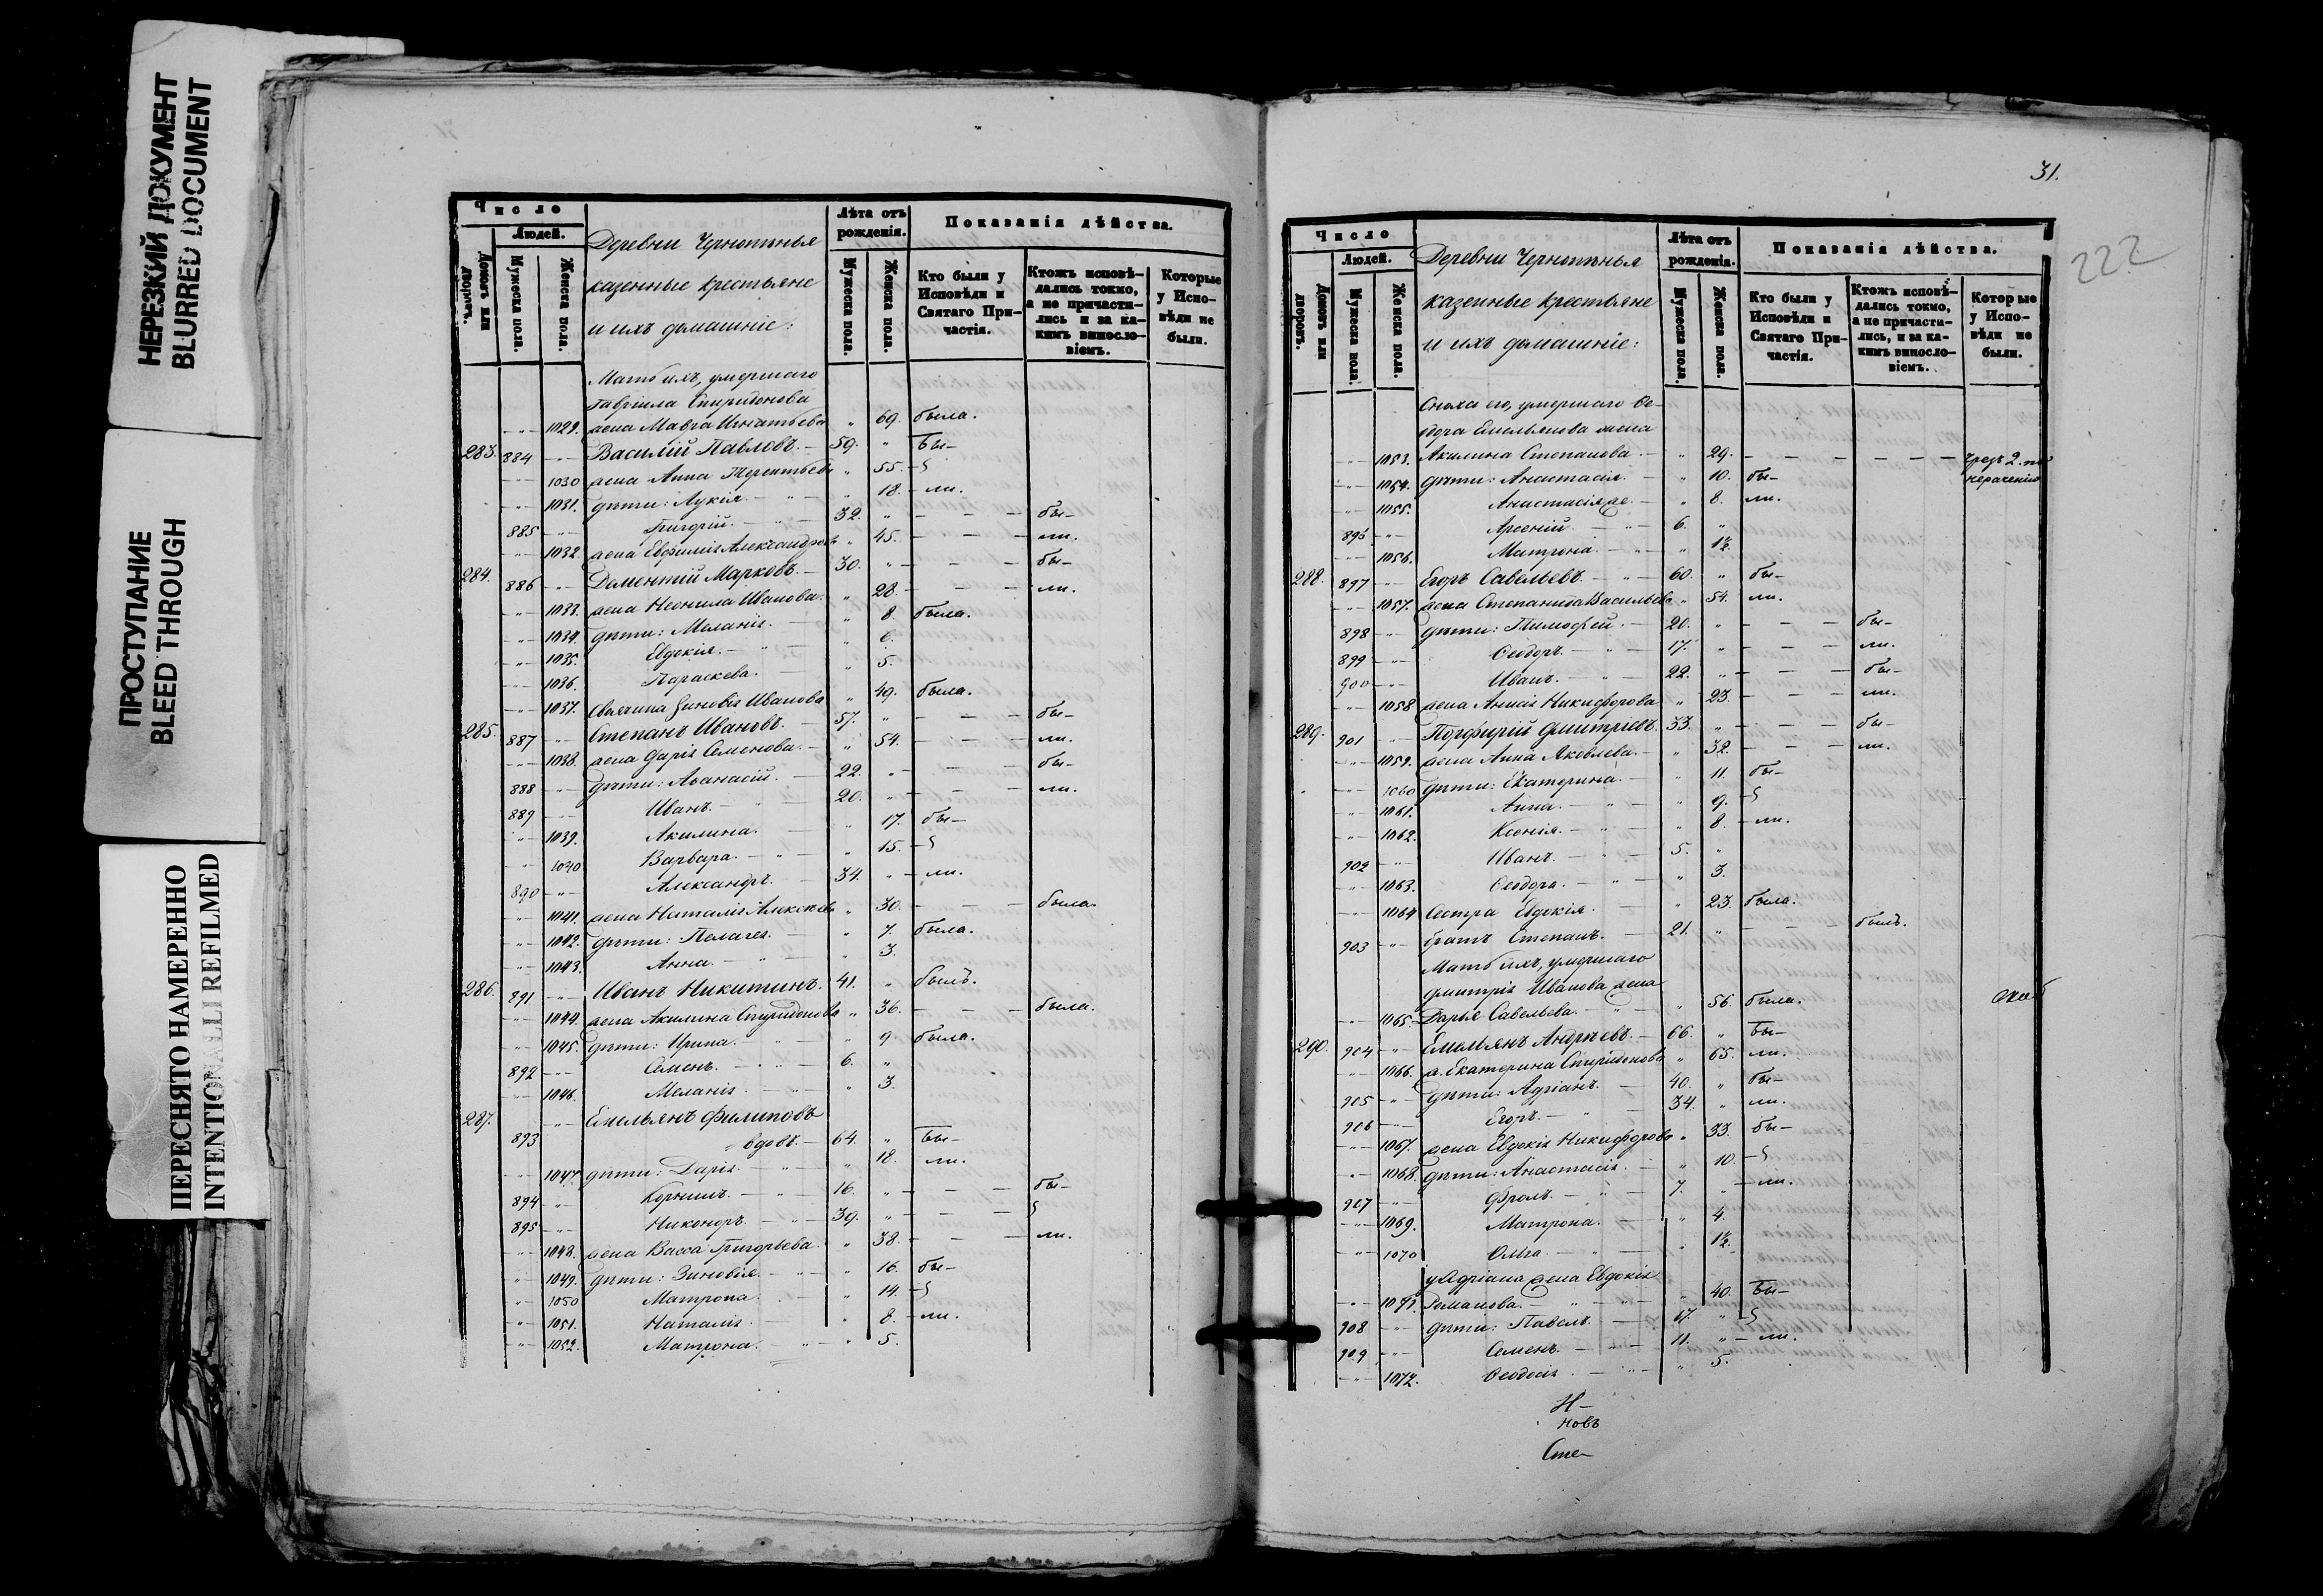 НЕРЕЗКИЙ ДОКУМЕНТ
BLURRED DOCUMENT
ПРОСТУПАНИЕ
BLEED THROUGH
ПЕРЕСНЯТО НАМЕРЕННО
INTENTIONALLI REFILMED
Число
Людей.
Домовъ или дворовъ.
Мужеска пола.
Женска пола.
Деревни
казенные крестьяне
и ихъ домашніе:
Лѣта отъ рожденія.
Мужеска пола.
Женска пола.
Показанія дѣйства.
Кто были у Исповѣди и Святаго Причастія.
Ктожъ исповѣдались токмо, а не причастились и за какимъ винословіемъ.
Которые у Исповѣди не были.
Мать ихъ, умершаго
Гавріила Спиридонова
1029. жена Мавра Игнатьева " 69. была.
283. 884 Василій Павловъ. 59. " бы-
1030 жена Анна Терентьева " 55.
1031. дѣти: Лукія. " 18. ли.
885 Григорій. 32. " бы-
1032. жена Евфимія Александрова " 45. ли.
284. 886 Дементій Марковъ. 30. " бы-
1033. жена Неонила Иванова. " 28. ли.
1034. дѣти: Меланія. " 8. была.
1035. Евдокія. " 6.
1036. Параскева. " 5.
1037. Зиновія Иванова " 49. была.
285. 887 Степанъ Ивановъ. 57. " бы-
1038. жена Дарія Семенова. " 54. ли.
888 дѣти: Аѳанасій. 22. " бы-
889 Иванъ. 20. " ли.
1039. Акилина. " 17. бы-
1040 Варвара. " 15.
890 Александръ. 34. " ли.
1041. жена Наталія Алексѣева " 30. была.
1042. дѣти: Пелагея. " 7. была.
1043. Анна. " 3.
286. 891 Иванъ Никитинъ. 41. " былъ.
1044. жена Акилина Спиридонова " 36. была.
1045. дѣти: Ирина. " 9. была.
892 Семенъ. 6. "
1046. Меланія. " 3.
287. Емельянъ Филиповъ
893 вдовъ. 64. " бы-
1047. дѣти: Дарія. " 18. ли.
894 Корнилъ. 16. " бы-
895 Никоноръ. 39. "
1048. жена Васса Григорьева. " 38. ли.
1049. дѣти: Зиновія. " 16. бы-
1050 Матрона. " 14.
1051. Наталія. " 8. ли.
1052. Матрона. " 5.
31.
222
Число
Людей.
Домовъ или дворовъ.
Мужеска пола.
Женска пола.
Деревни
казенные крестьяне
и ихъ домашніе:
Лѣта отъ рожденія.
Мужеска пола.
Женска пола.
Показанія дѣйства.
Кто были у Исповѣди и Святаго Причастія.
Ктожъ исповѣдались токмо, а не причастились, и за какимъ винословіемъ.
Которые у Исповѣди не были.
Сноха его, умершаго Ѳе-
одора Емельянова жена
1053. Акилина Степанова. " 29. чрезъ 2. по нераченію
1054. дѣти: Анастасія. " 10. бы-
1055. Анастасія же. " 8. ли.
896 Арсеній. 6. "
1056. Матрона. " 1½
288. 897 Егоръ Савельевъ. 60. " бы-
1057. жена Степанида Васильева " 54. ли.
898 дѣти: Тимоѳей. 20. " бы-
899 Ѳеодоръ. 17. " ли.
900 Иванъ. 22. " бы-
1058 жена Анисія Никифорова " 23. ли.
289. 901 Порфирій Дмитріевъ. 33. " бы-
1059. жена Анна Яковлева. " 32. ли.
1060 дѣти: Екатерина. " 11. бы-
1061. Анна. " 9.
1062. Ксенія. " 8. ли.
902 Иванъ. 5. "
1063. Ѳеодора. " 3.
1064 Сестра Евдокія. " 23. была.
903 братъ Степанъ. 21. " былъ.
Мать ихъ, умершаго
Дмитрія Иванова жена
1065. Дарья Савельева. " 56. была.
290. 904 Емельянъ Андреевъ. 66. " бы-
1066. ж. Екатерина Спиридонова " 65. ли.
905 дѣти: Адріанъ. 40. " бы-
906 Егоръ. 34. " ли.
1067. жена Евдокія Никифорова " 33. бы-
1068. дѣти: Анастасія. " 10.
907 Фролъ. 7. " ли.
1069. Матрона. " 4.
1070 Ольга. " 1½.
у Адріана жена Евдокія
1071. Романова. " 40. бы-
908 дѣти: Павелъ. 17. "
909 Семенъ. 11. " ли.
1072. Ѳеодосія. " 5.
Н-
новъ
Сте-